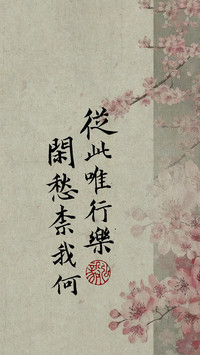 從此唯行樂
閑愁柰我何